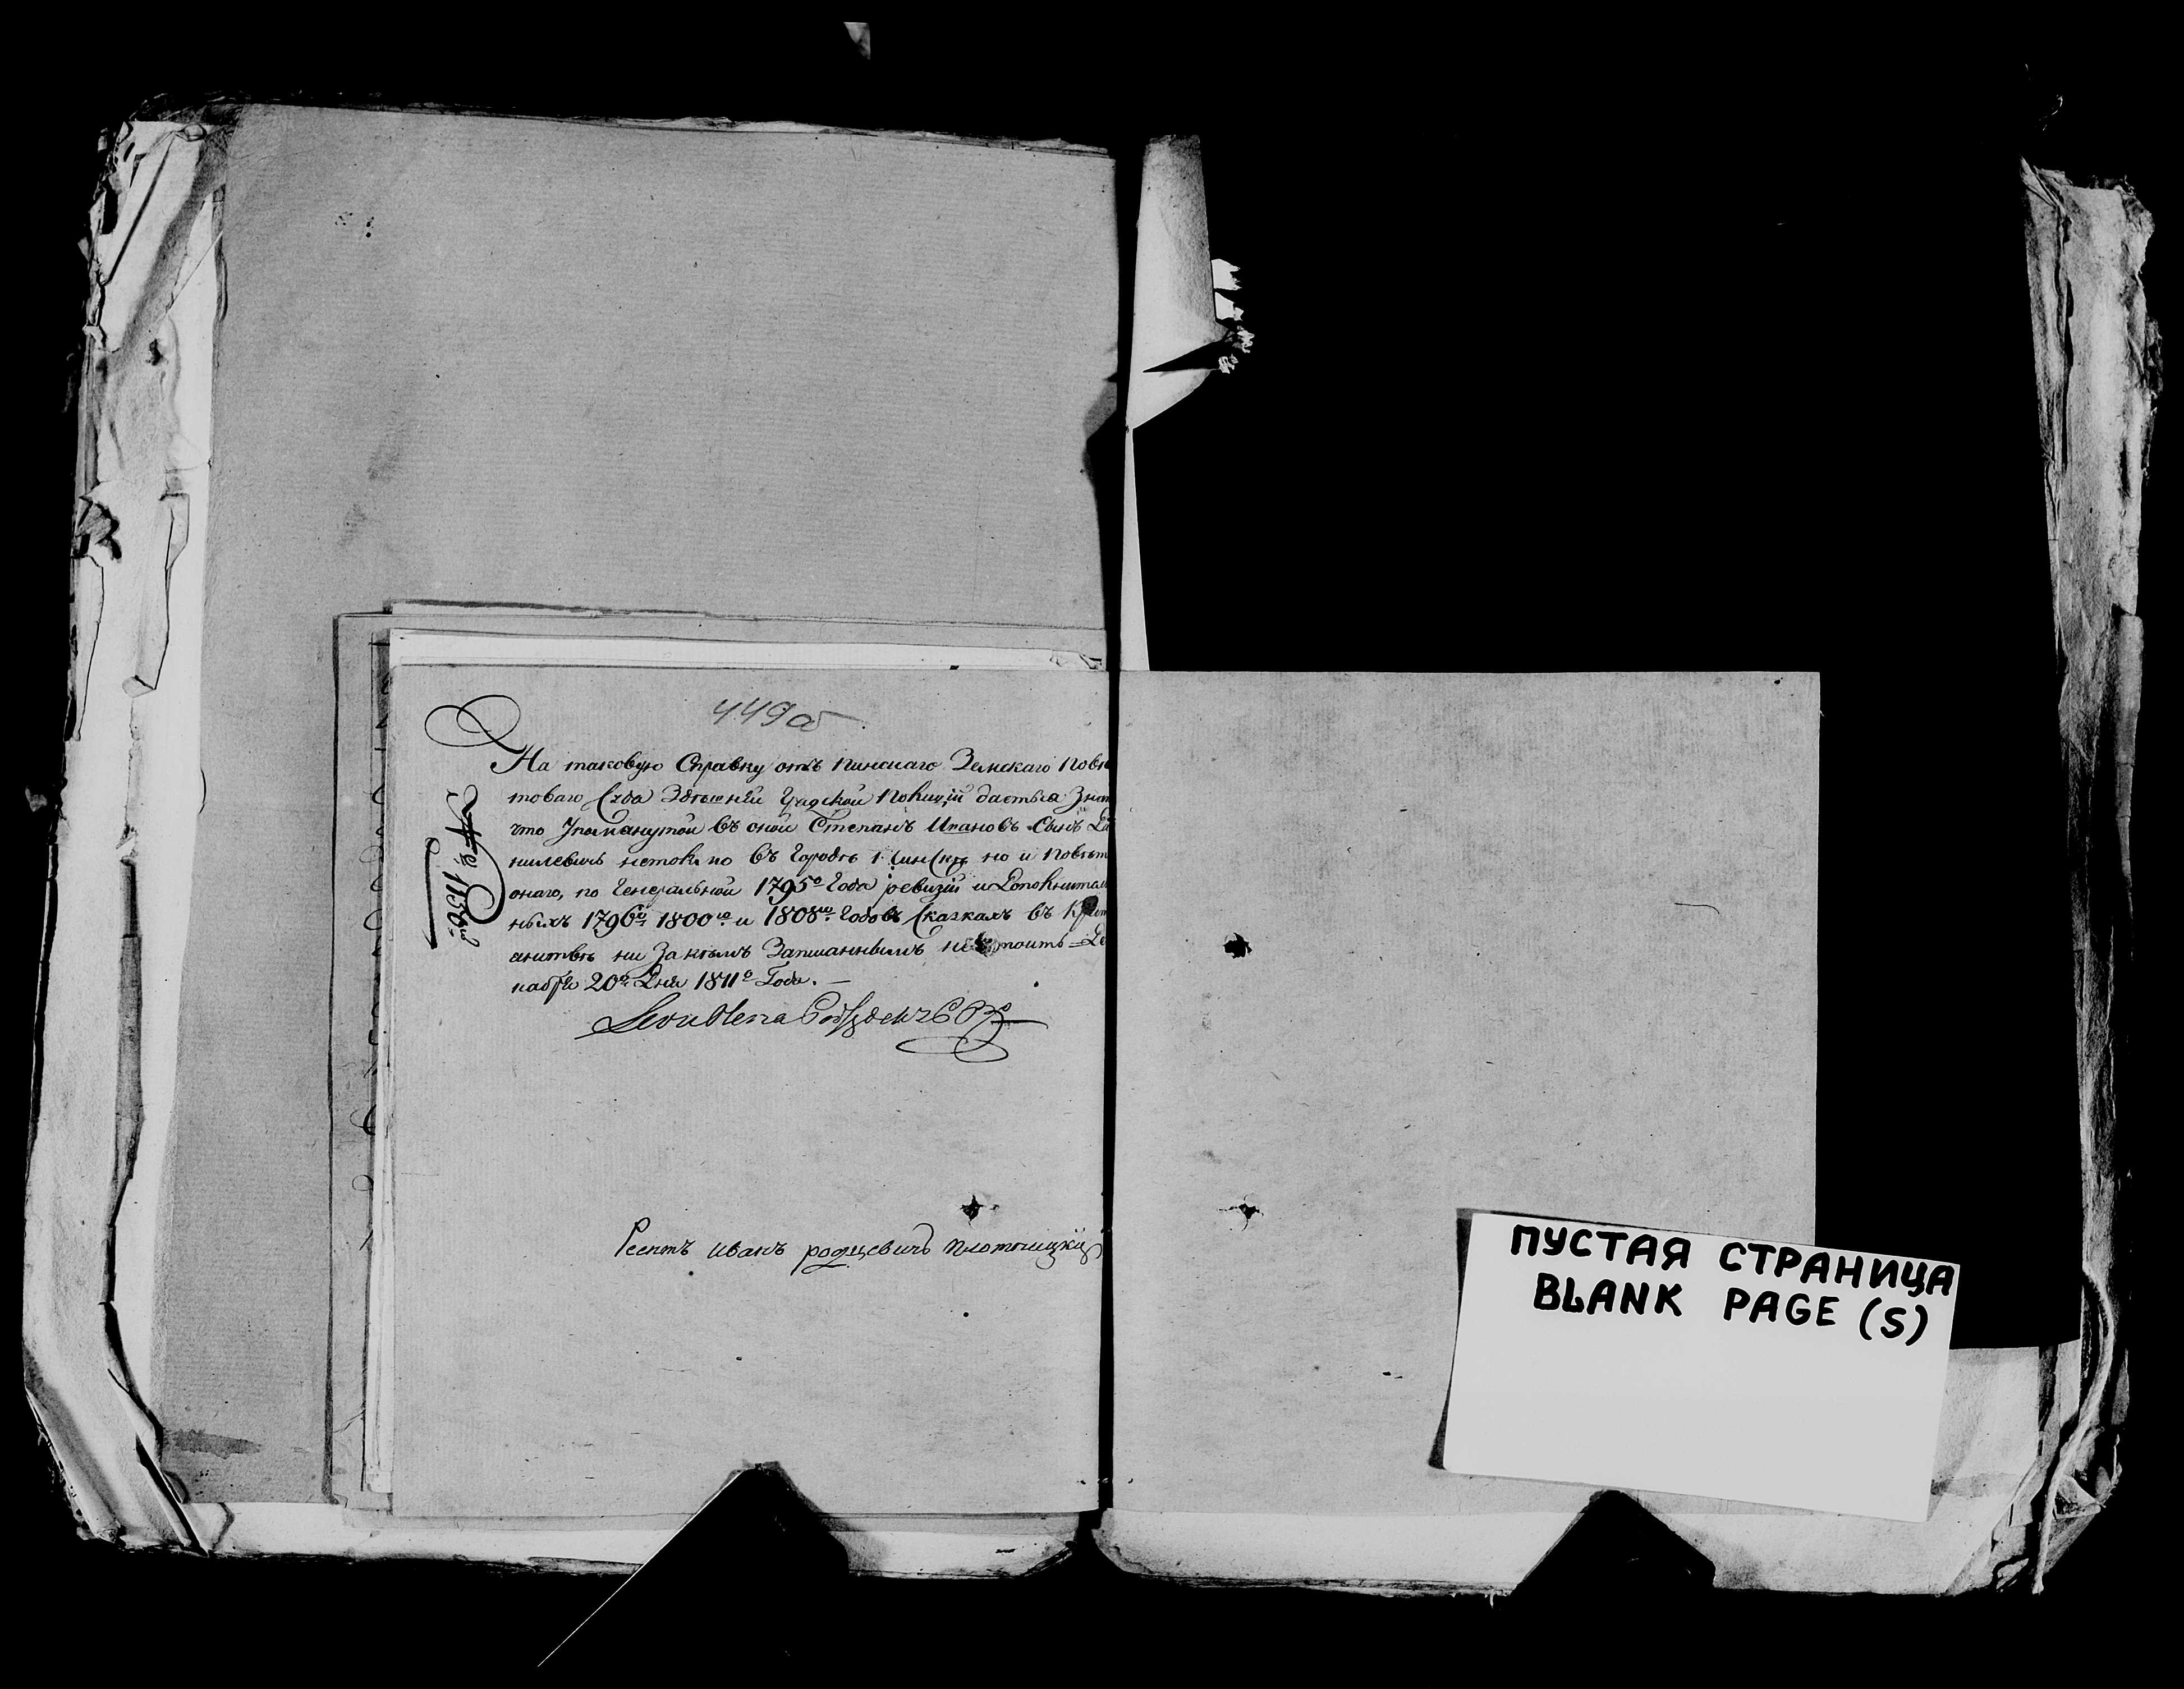 449об
На таковую Справку отъ пинскаго Земскаго Повѣ
товаго Суда Здѣшній Градской Полиціи даеться Знат
что Упомянутой въ оной Степанъ Ивановъ Сынъ Да
нилевичь нетокмо въ Городѣ Пинску но и Повѣт
онаго, по Генеральной 1795º Года ревизіи и Дополнител
ныхъ 1796го 1800го и 1808го Годовъ Сказкахъ въ Крет
анитвѣ ни За кѣмъ Записаннымъ не Стоить = Де
кабря 20го Дня 1811º Года. —
№ 1150
Реентъ Иванъ родцевичъ Плотницкій
ПУСТАЯ СТРАНИЦА
BLANK PAGE (S)